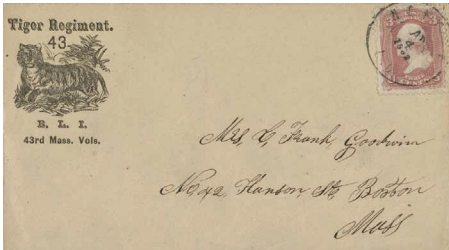 Tiger Regiment.
43.
B. L. I.
43rd Mass. Vols.
Mrs C. Frank Goodwin
No 42 Hanson St, Boston
Mass